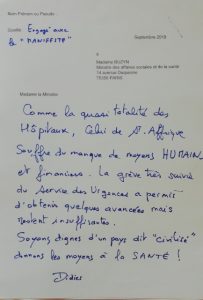 Nom Prénom ou Pseudo :
Qualité : Engagé avec
le "MANIFESTE"
Septembre 2019
à
Madame BUZYN
Ministre des affaires sociales et de la santé
14 avenue Duquesne
75350 PARIS
Madame la Ministre
Comme la quasi totalité des
Hôpitaux, Celui de St. Affrique
Souffre du manque de moyens HUMAINS
et financiers. La grève très suivie
du Service des Urgences a permis
d'obtenir quelques avancées mais
restent insuffisantes.
Soyons dignes d'un pays dit "civilisé"
donnons les moyens à la SANTÉ !
Didier